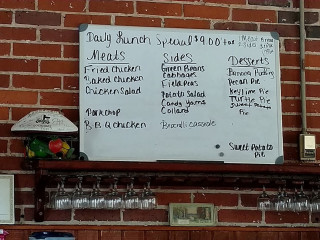 Daily Lunch Special $9.00 + tax
1 Meat Bread
Meats
Sides
Desserts
Fried Chicken
Baked Chicken
Chicken Salad
Pork Chop
B.B.Q Chicken
Green Beans
Cabbages
Field Peas
Potato Salad
Candy Yams
Collard
Broccoli casserole
Banana Pudding
Pecan Pie
Key lime Pie
Turtle Pie
Pie
Sweet Potato
Pie